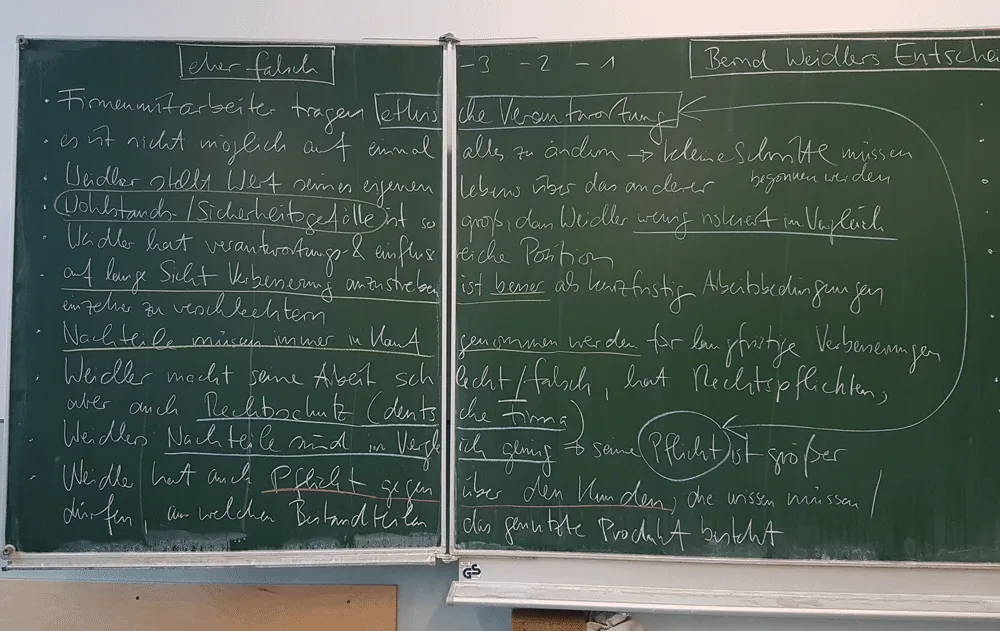 eher falsch
-3 -2 -1
Bernd Weidlers Entsche
• Firmenmitarbeiter tragen ethische Verantwortung
• es ist nicht möglich auf einmal alles zu ändern → kleine Schritte müssen
begonnen werden
• Weidler stellt Wert seines eigenen Lebens über das anderer
• Wohlstands-/Sicherheitsgefälle ist so groß, dass Weidler wenig riskiert im Vergleich
• Weidler hat verantwortungs- & einflussreiche Position
• auf lange Sicht Verbesserung anzustreben ist besser als kurzfristig Arbeitsbedingungen
einzelner zu verschlechtern
• Nachteile müssen immer in Kauf genommen werden für langfristige Verbesserungen
• Weidler macht seine Arbeit schlecht/falsch, hat Rechtspflichten,
aber auch Rechtsschutz (deutsche Firma)
• Weidlers Nachteile sind im Vergleich gering → seine Pflicht ist größer
• Weidler hat auch Pflicht gegenüber den Kunden, die wissen müssen/
dürfen, aus welchen Bestandteilen das genutzte Produkt besteht
GS